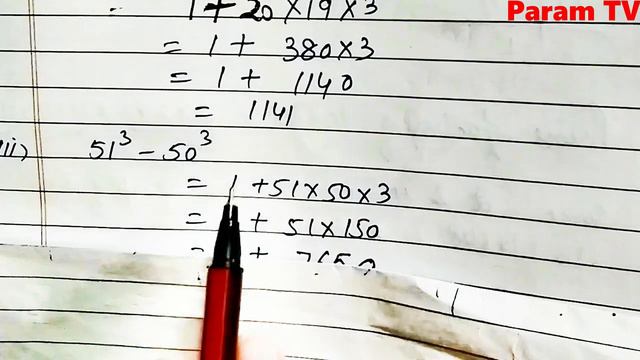 Param TV
1 + 20 × 19 × 3
= 1 + 380×3
= 1 + 1140
= 1141
ii) 51³ – 50³
= 1 +51×50×3
= + 51×150
= + 7650